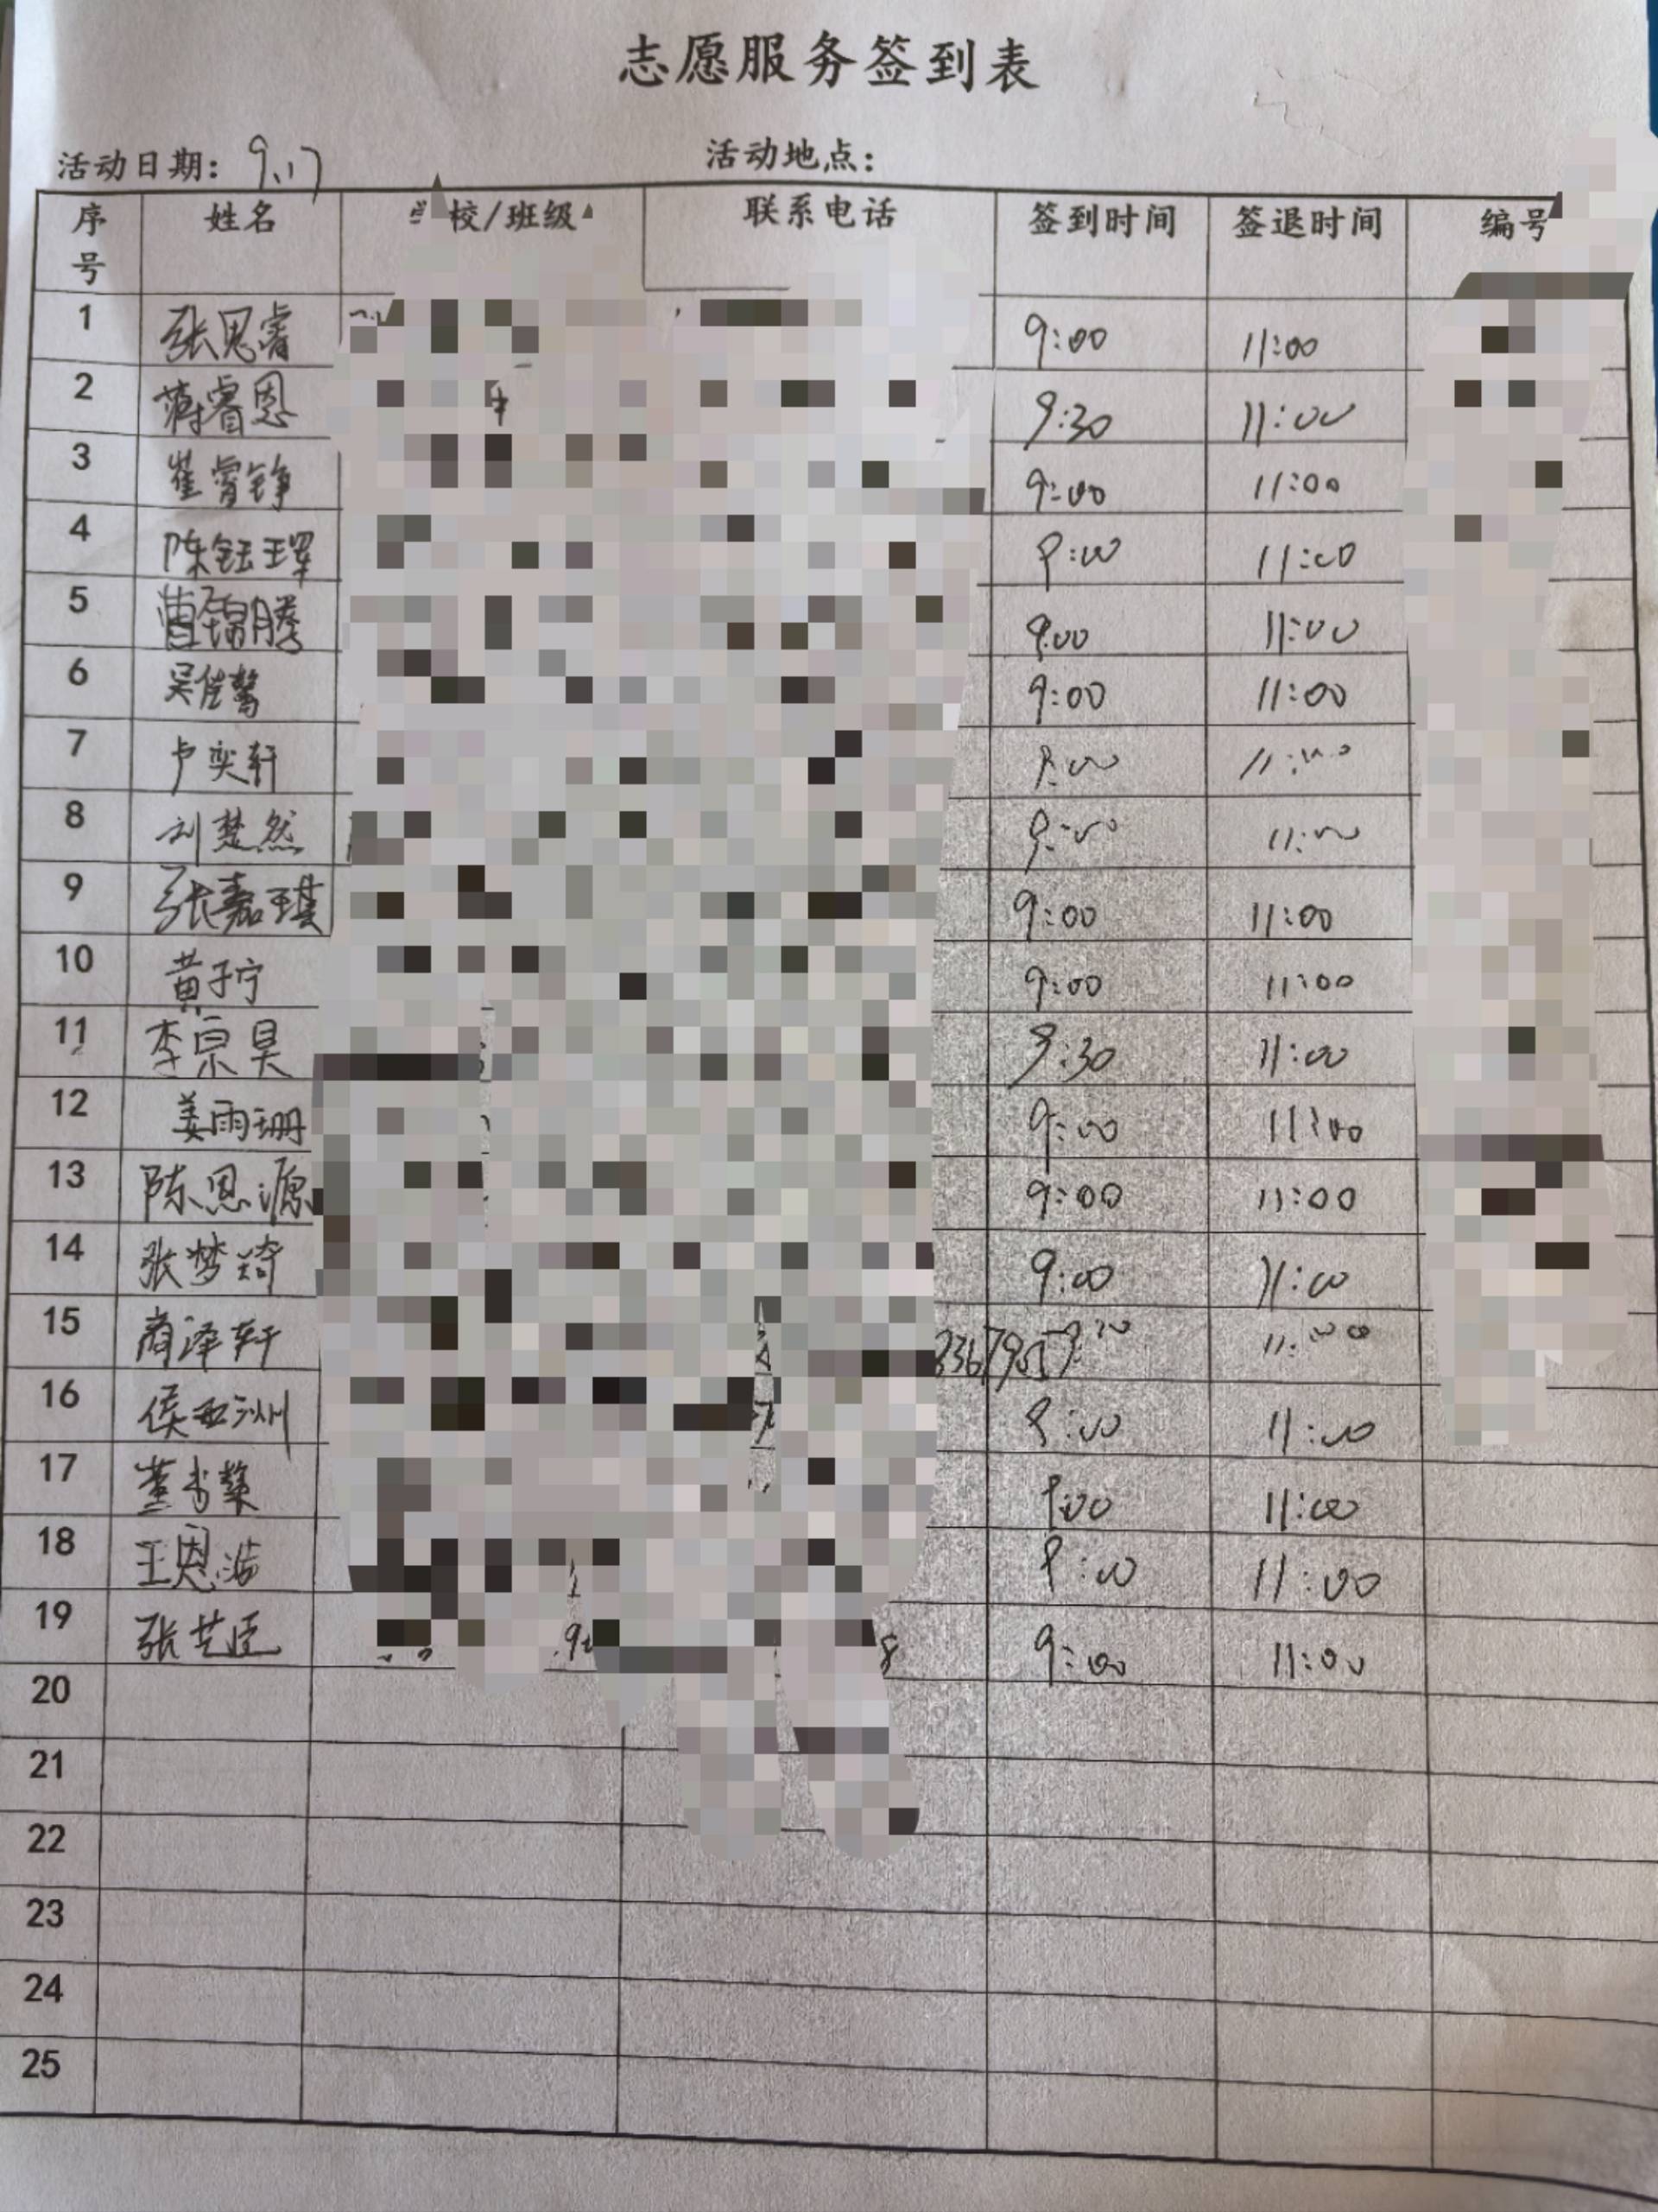 志愿服务签到表
活动日期：9.17 活动地点：
序号 姓名 校/班级 联系电话 签到时间 签退时间 编号
1 张思睿 9:00 11:00
2 蒋睿恩 9:30 11:00
3 崔霄铮 9:00 11:00
4 陈钰珲 9:00 11:00
5 曹锦腾 9:00 11:00
6 吴佳骜 9:00 11:00
7 卢奕轩 9:00 11:00
8 刘楚然 9:00 11:00
9 张嘉琪 9:00 11:00
10 黄子宁 9:00 11:00
11 李宗昊 9:30 11:00
12 姜雨珊 9:00 11:00
13 陈恩源 9:00 11:00
14 张梦琦 9:00 11:00
15 商泽轩 11:00
16 侯亚洲 9:00 11:00
17 董书 9:00 11:00
18 王恩浩 9:00 11:00
19 张艺臣 9:00 11:00
20
21
22
23
24
25